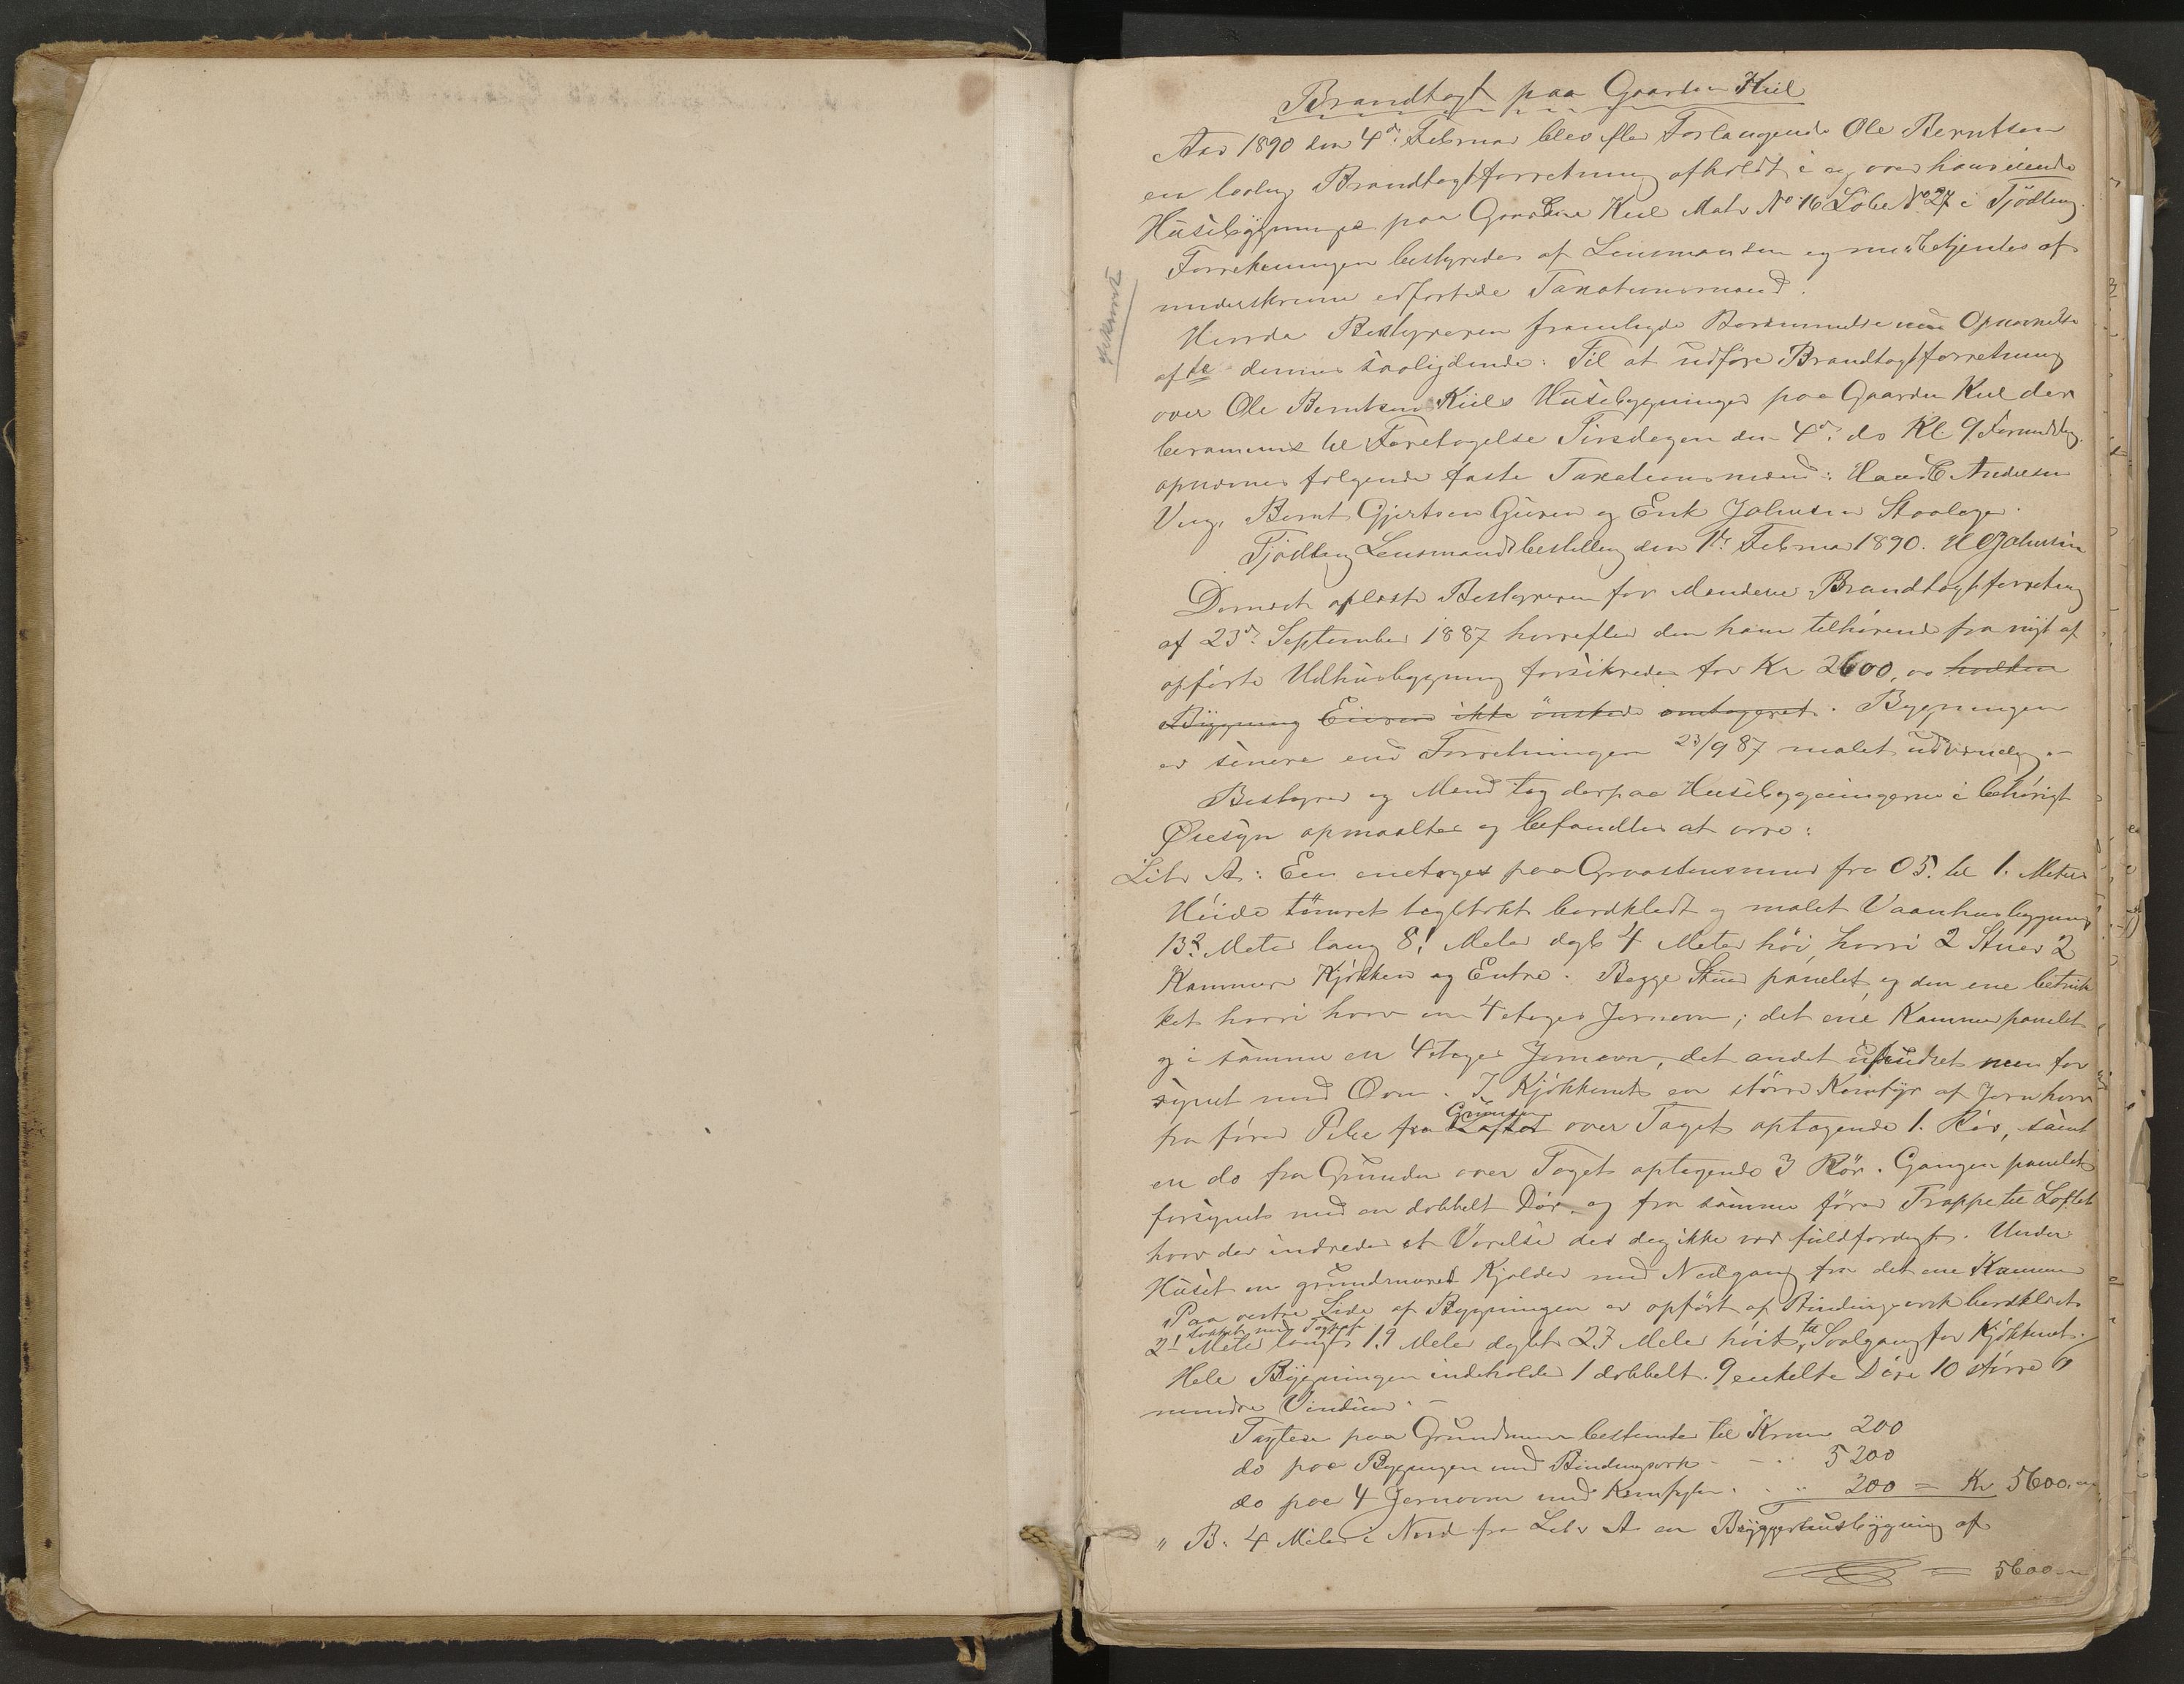 Brandtagt paa Gaarden Kiil
Aar 1890 den 4de Februar blev efter Forlangende Ole Berntsen
en lovlig Brandtagtforretning afholdt i og over hans iiende
Husebygninger paa Gaarden Kiil Matr No 16 Löbe No 27 i Tjödling.
Forretningen bestyredes af Lensmanden og medbetjentes af
underskrevne edfæstede Taxationsmænd.
Bestyreren fremlagde Berammelse med Opnævnelse
af 1ste dennes saalydende: Til at udföre Brandtagtforretning
over Ole Berntsen Kiils Husebygninger paa Gaarden Kiil der
berammes til Foretagelse Tirsdagen den 4de ds Kl. 9 Formiddag.
opnævnes fölgende faste Taxationsmænd: Andersen
Bernt Gjertsen Guren og Erik Johnsen Stoaleger.
Tjödling Lensmandsbestilling den 1ste Februar 1890. Johnsen
Dernæst oplæste Bestyreren for Mændene Brandtagtforretning
af 23de September 1887 hvorefter den ham tilhörende fra nyt af
opförte Udhusbygning forsikredes for Kr 2600, hvilken
Bygning Eieren ikke önskede omtaxeret. Bygningen
er senere end Forretningen 23/9 87 malet udvendig. –
Bestyrer og Mænd tog derpaa Husebyggningerne i behörigt
Øiesyn opmaaltes og befandtes at være:
Litr A: Een eenetages paa Graastensmur fra 05. til 1. Meters
Höide tömret tegltekt bordklædt og malet Vaanhusbygning
13.2 Meter lang 8.1 Meter dyb 4 Meter höi hvori 2 Stuer 2
Kammere Kjökken og Entre. Begge Stuer panelet og den ene betruk
ket hvori hver en 4 etages Jernovn; det ene Kammer panelet
og i samme en 4 etages Jernovn, det andet men for
synet med Ovn. I Kjökkenet en större Komfyr af Jern hvor
fra förer Pibe fra Loftet Grunden over Taget optagende 1. Rör, samt
en do fra Grunden over Taget optagende 3 Rör. Gangen panelet
forsynet med en dobbelt Dör og fra samme förer Trappe til Loftet
hvor der indredes et Værelse der dog ikke var fuldfærdigt. Under
Huset en grundmuret Kjelder med Nedgang fra det ene Kammer
Paa vestre Side af Bygningen er opfört af Bindingsverk bordklædt
tækket med Tagpap
2.1 Meter langt 1.9 Meter dybt 2.7 Meter höit, til Svalgang for Kjökkenet.
Hele Bygningen indeholder 1 dobbelt. 9 enkelte Döre 10 större 6
mindre Vinduer. –
Taxten paa Grundmuren bestemtes til Kroner 200
do paa Bygningen med Bindingsverk – – " 5200
do paa 4 Jernovne med Komfyr . . " 200 = Kr 5600,00
" B. 4 Meter i Nord fra Litr A en Bryggerhusbygning af
= 5600,00